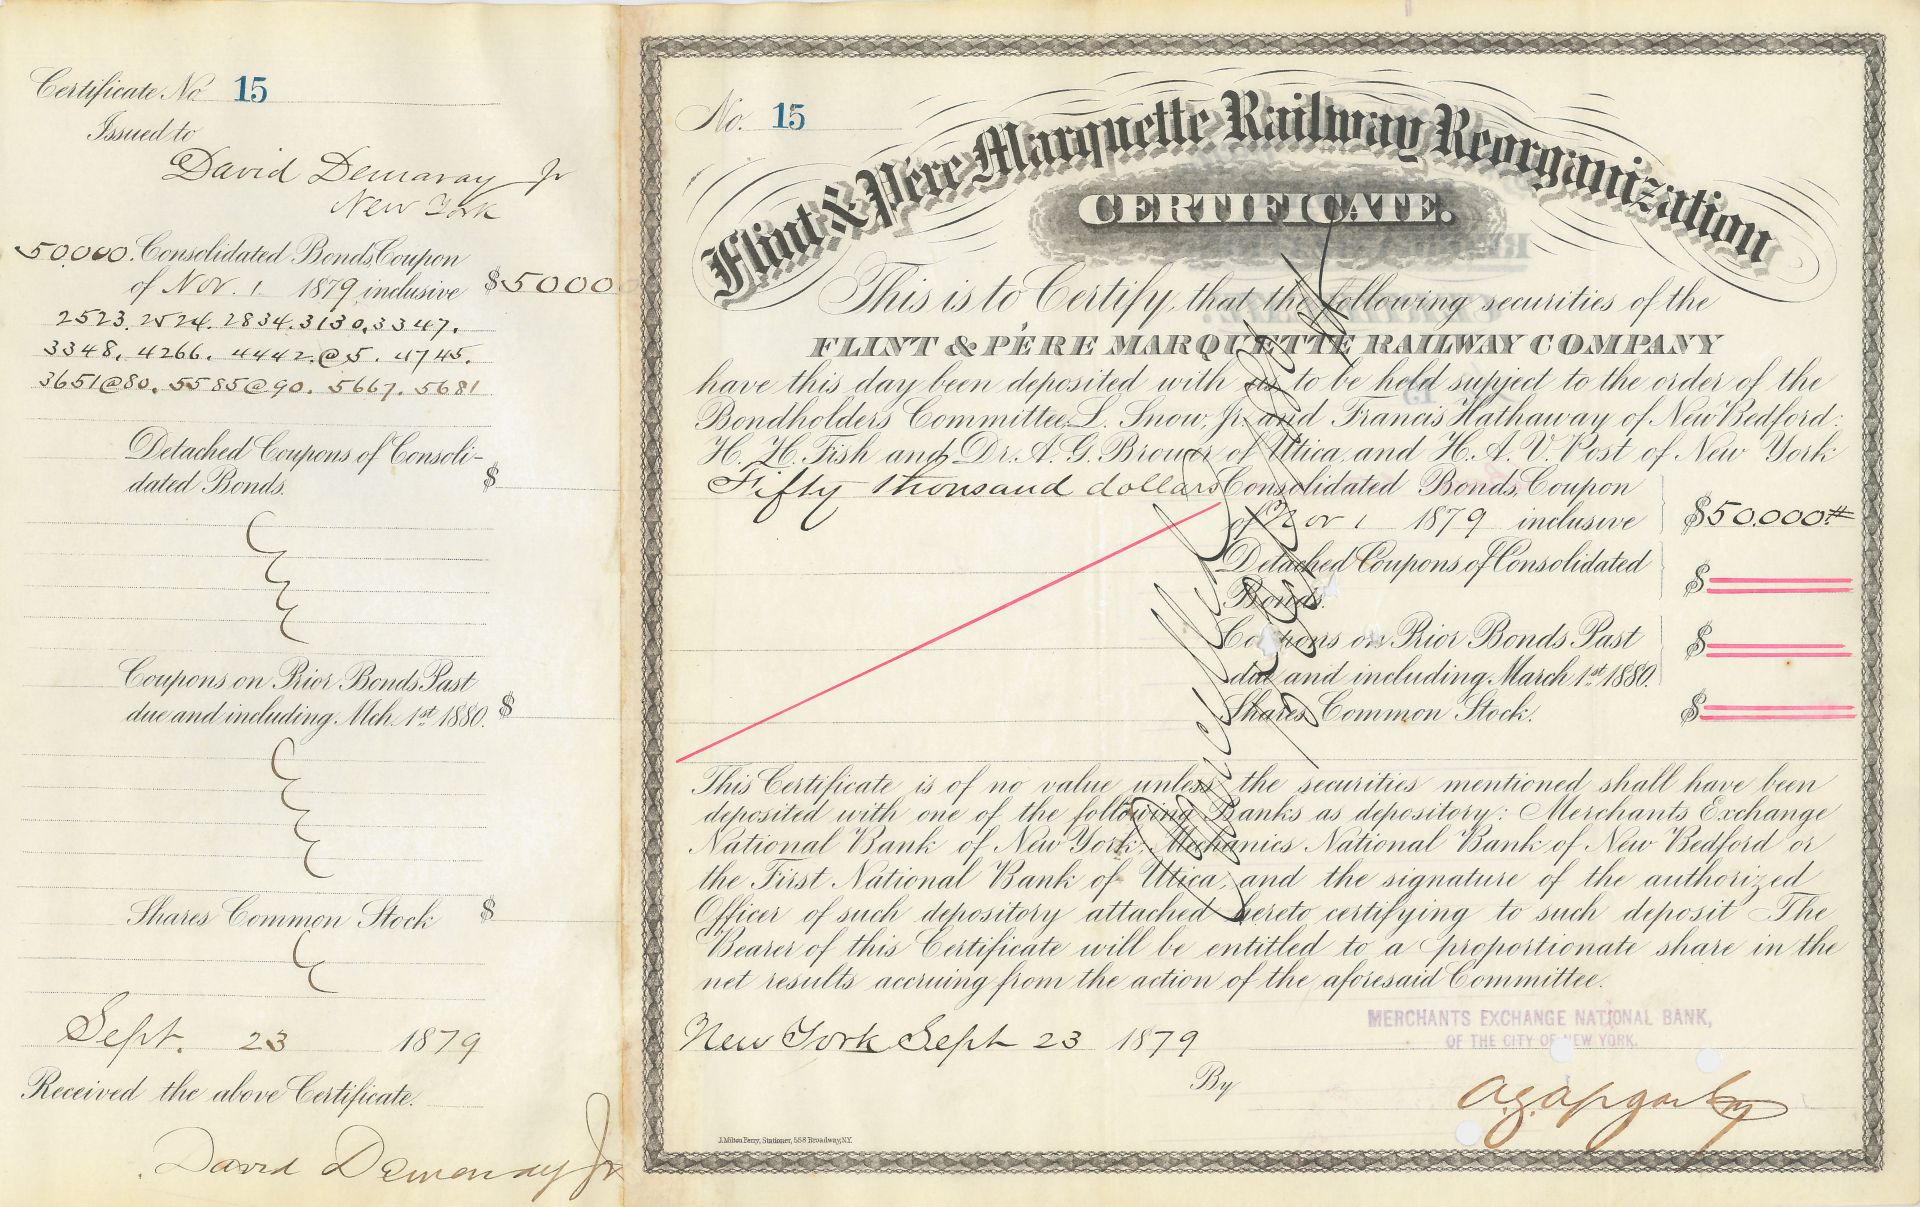 Certificate No 15
Issued to
David Demaray Jr
New York
50.000. Consolidated Bonds, Coupon
of Nov. 1 1879 inclusive $50000
2523. 2524. 2834. 3130. 3347.
3348. 4266. 4442.@5. 4745.
3651@80. 5585@90. 5667. 5681
Detached Coupons of Consoli-
dated Bonds. $
Coupons on Prior Bonds Past
due and including Mch. 1st 1880. $
Shares Common Stock $
Sept. 23 1879
Received the above Certificate.
David Demaray Jr
No. 15
Flint & Pére Marquette Railway Reorganization
CERTIFICATE.
This is to Certify, that the following securities of the
FLINT & PÉRE MARQUETTE RAILWAY COMPANY
have this day been deposited with us to be held supject to the order of the
Bondholders Committee, L. Snow, Jr. and Francis Hathaway of New Bedford:
H. H. Fish and Dr. A. G. Brower of Utica and H. A. V. Post of New York
Fifty thousand dollars Consolidated Bonds, Coupon
of Nov 1 1879 inclusive $50.000
Detached Coupons of Consolidated
Bonds. $
Coupons on Prior Bonds Past $
due and including March 1st 1880.
Shares Common Stock. $
Cancelled
This Certificate is of no value unless the securities mentioned shall have been
deposited with one of the following Banks as depository: Merchants Exchange
National Bank of New York, Mechanics National Bank of New Bedford or
the First National Bank of Utica, and the signature of the authorized
Officer of such depository attached hereto certifying to such deposit The
Bearer of this Certificate will be entitled to a proportionate share in the
net results accruing from the action of the aforesaid Committee.
MERCHANTS EXCHANGE NATIONAL BANK,
OF THE CITY OF NEW YORK.
New York Sept 23 1879
By
J. Milton Ferry, Stationer, 558 Broadway, N.Y.